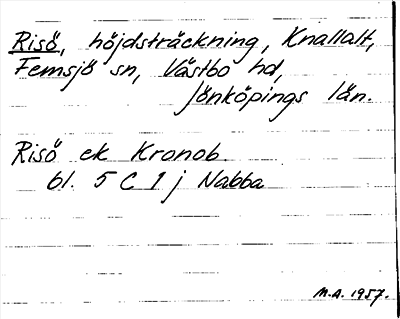 Risö, höjdsträckning, Knallalt,
Femsjö sn, Västbo hd,
Jönköpings län.
Risö ek Kronob.
bl. 5 C 1 j Nabba
M.A. 1957.